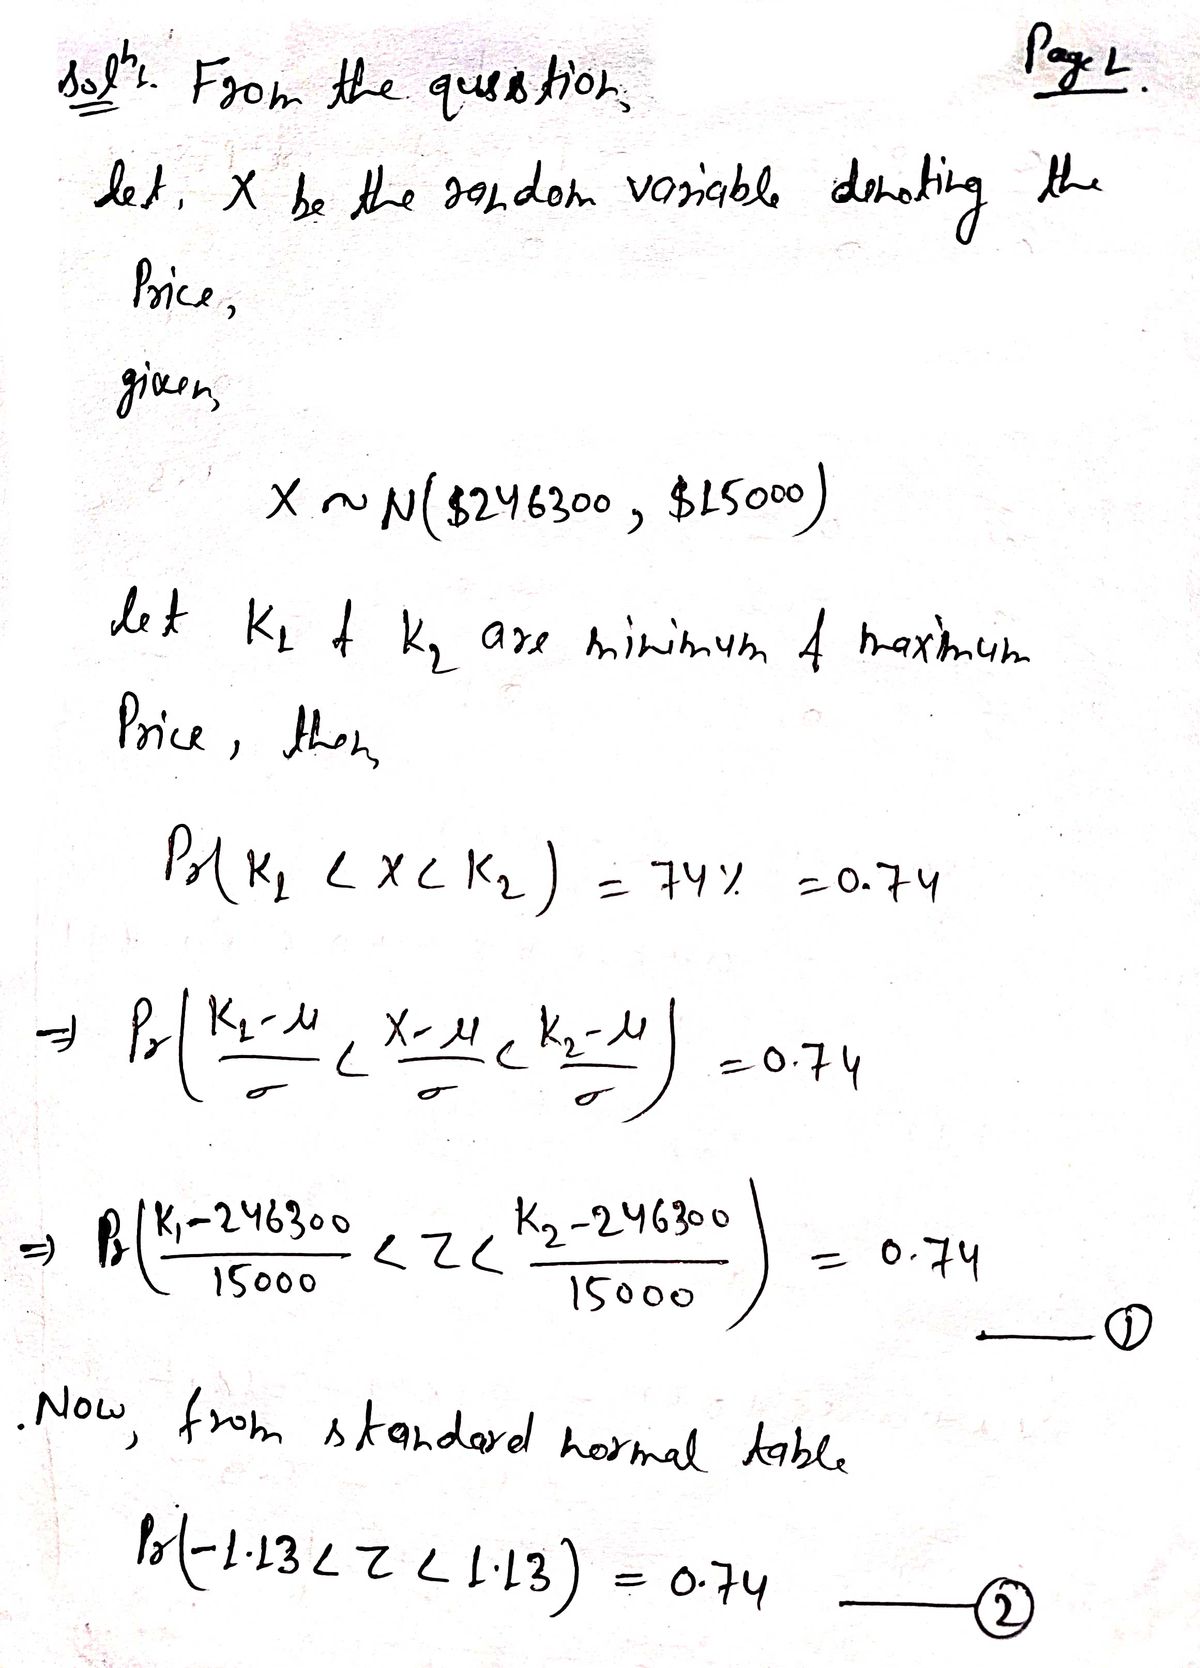 Page 1.
Solⁿ:. From the question,
let, X be the random variable denoting the
Price,
given,
X ~ N($246300, $15000)
let K₁ & K₂ are minimum & maximum
Price, then,
Pr(K₁ < X < K₂) = 74% = 0.74
⇒ Pr((K₁-μ)/σ < (X-μ)/σ < (K₂-μ)/σ) = 0.74
⇒ Pr((K₁-246300)/15000 < Z < (K₂-246300)/15000) = 0.74
——— ①
Now, from standard normal table
Pr(-1.13 < Z < 1.13) = 0.74 ——— ②